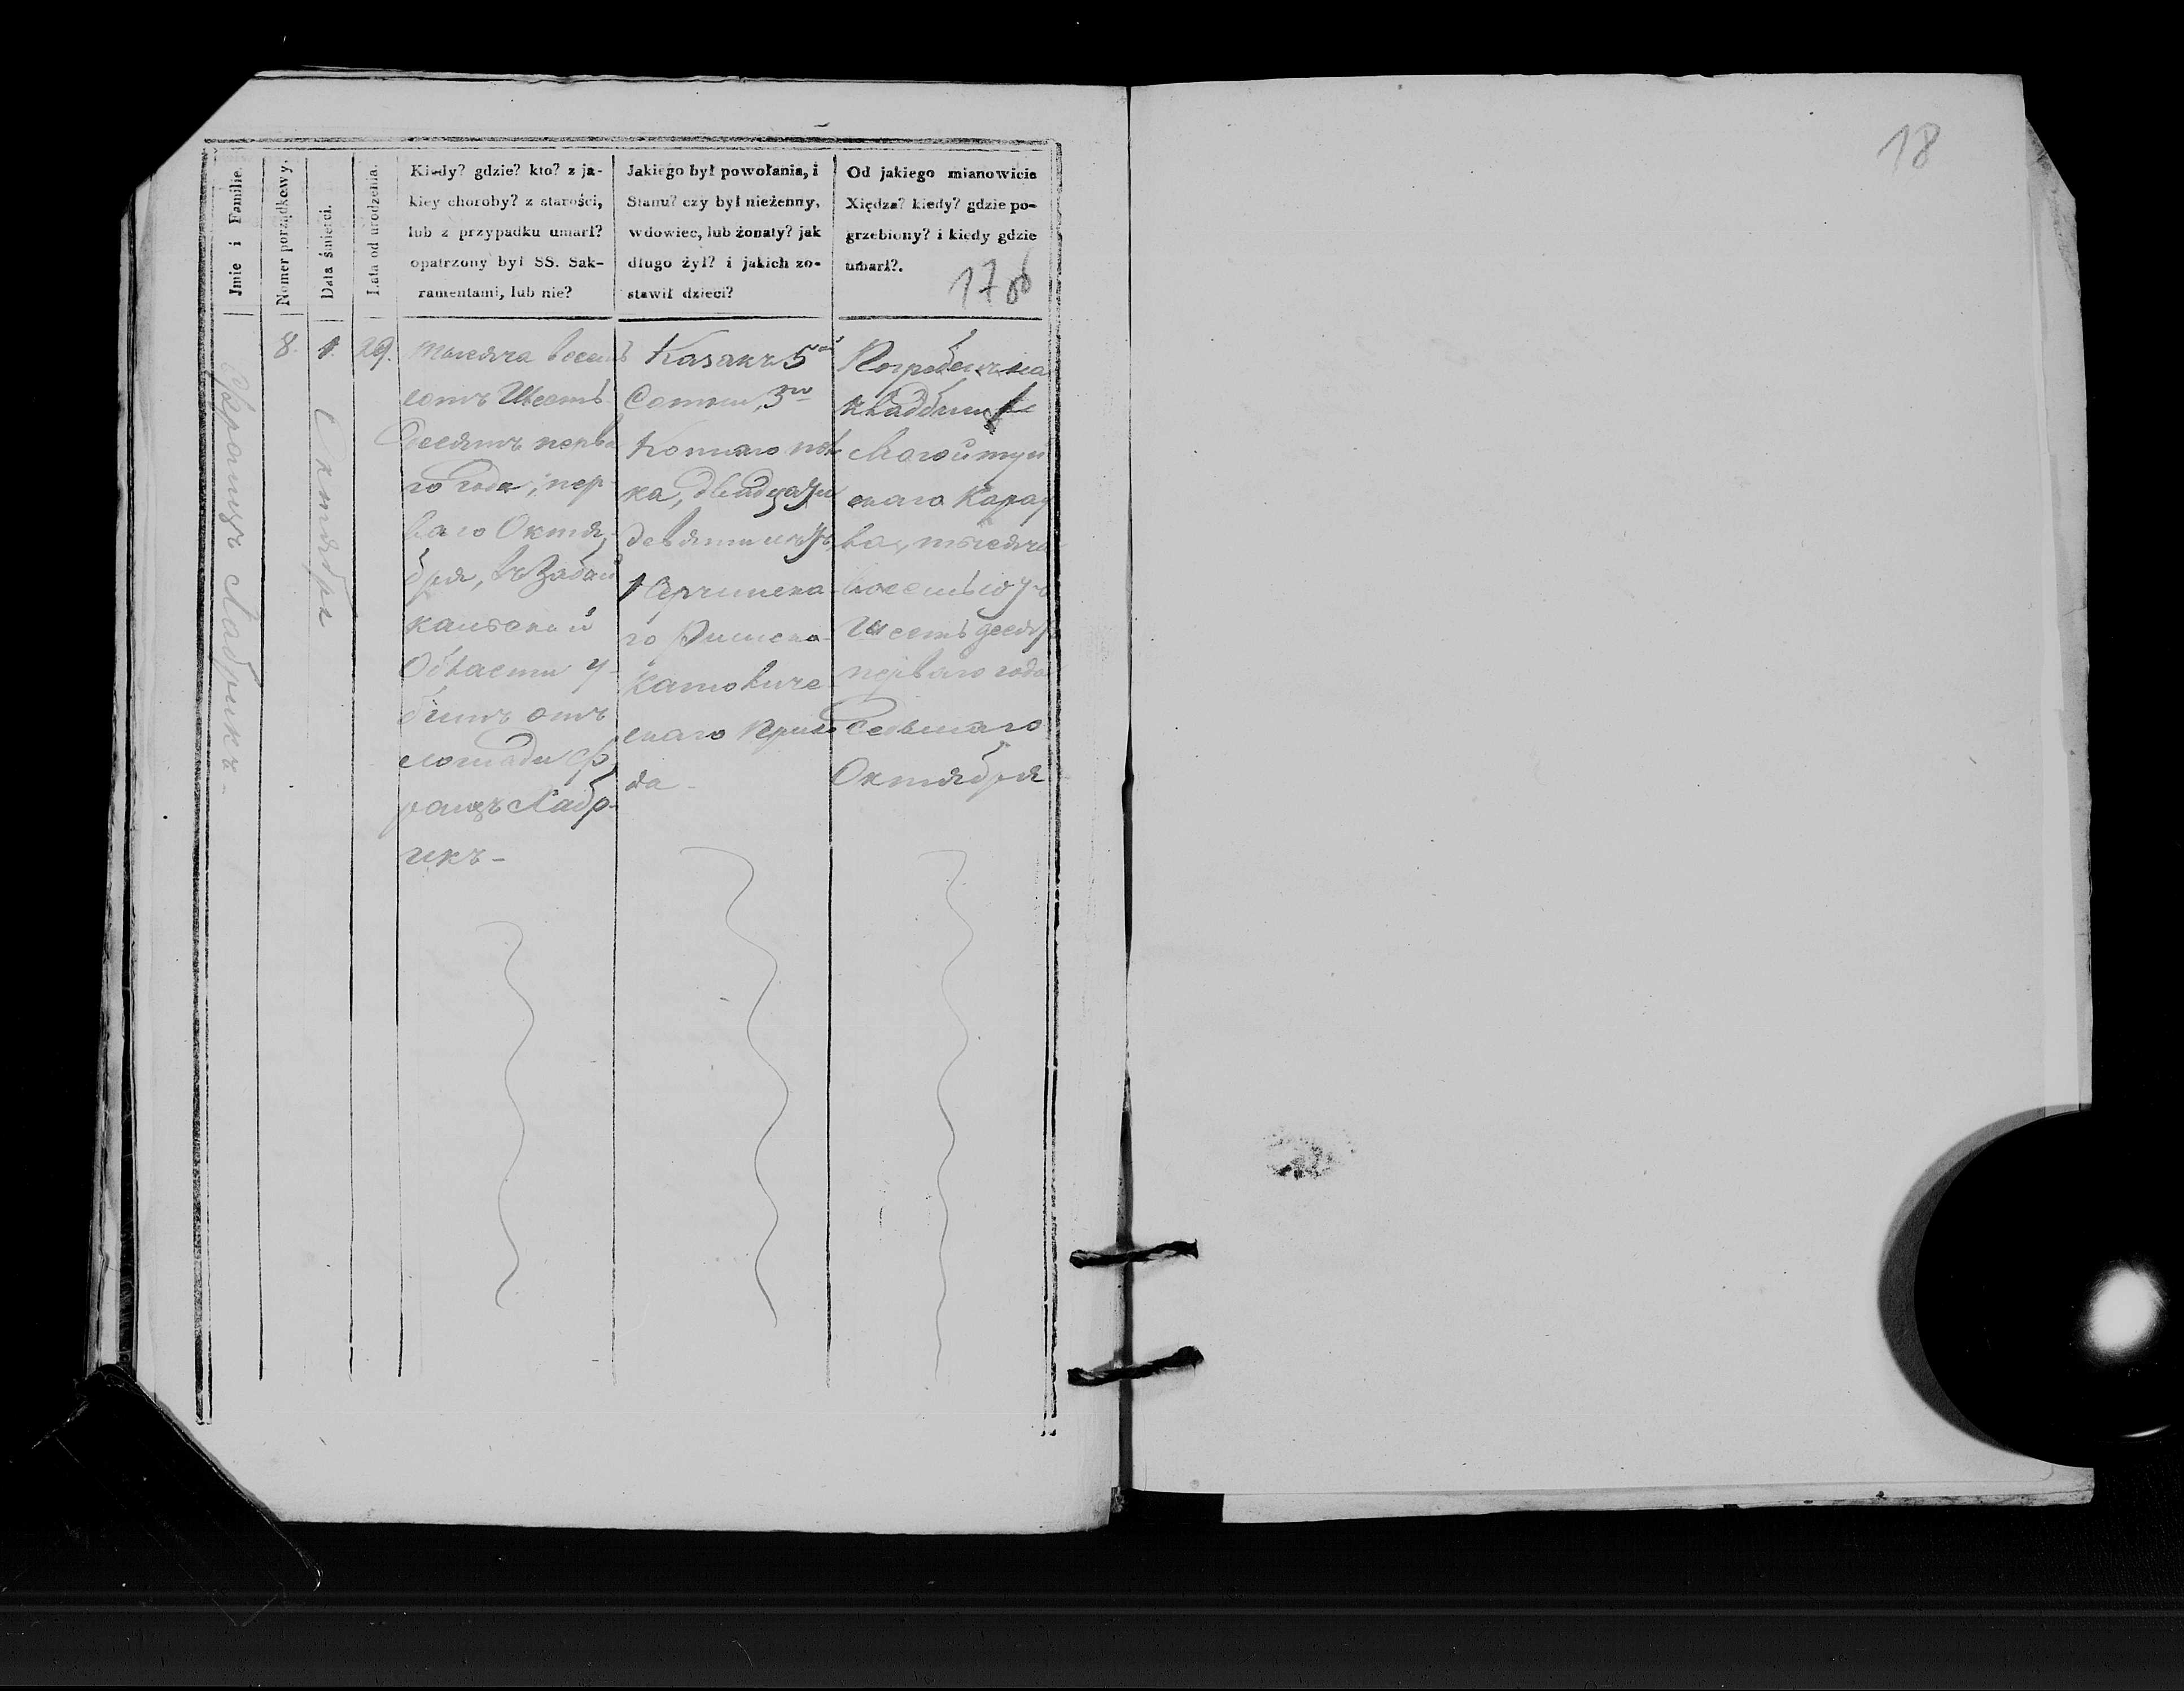 18
Jmie i Familie.
Numer porządkowy.
Data śmierci.
Lata od urodzenia.
Kiedy? gdzie? kto? z ja-
kiey choroby? z starości,
lub z przypadku umarł?
opatrzony był SS. Sak-
ramentami, lub nie?
Jakiego był powołania, i
Stanu? czy był nieżenny,
wdowiec, lub żonaty? jak
długo żył? i jakich zo-
stawił dzieci?
Od jakiego mianowicie
Xiędza? kiedy? gdzie po-
grzebiony? i kiedy gdzie
umarł?.
Францъ Лабрикъ -
8.
1.
Октября
29.
тысяча восемь
сотъ Шесть
Десятъ перва
го года, пер-
ваго Октя-
бря, въ Забай
кальской
Области у-
битъ отъ
лошади Ф
ранцъ Лабр-
икъ -
Казакъ 5ой
Сотни, 3го
Коннаго пол
ка, двадцати
девяти лѣтъ,
Нерчинска
го Римско-
Католиче-
скаго Прихо
да -
Погребенъ на
кладбищѣ
Могойтуй
скаго Карау
ла, тысяча
восемьсотъ
Шесть десятъ
перваго года
Седьмаго
Октября